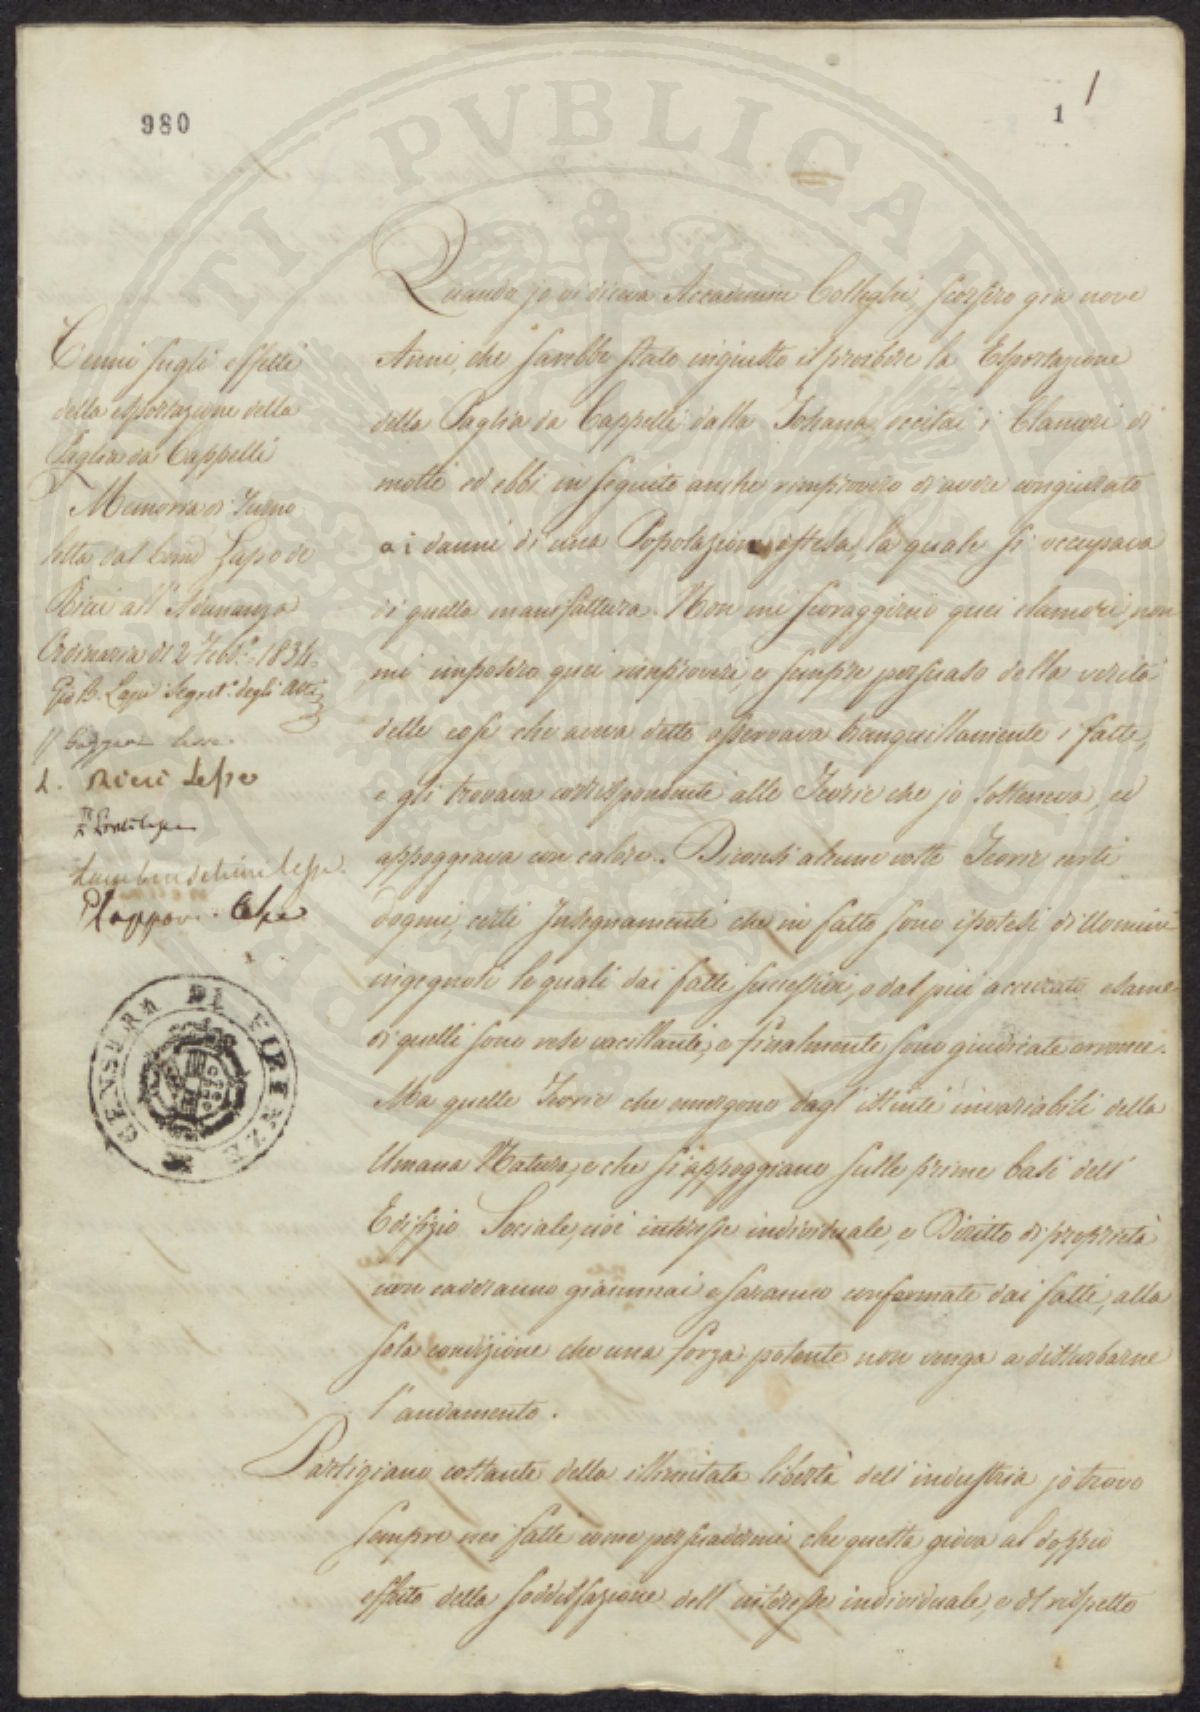 980
1
Cenni sugli effetti
della esportazione della
Paglia da Cappelli
Memoria di Turno
letta dal Lapo de
Ricci all'Adunanza
Ordinaria di 2 Febb.° 1834.
Gio B. Lapi Segret.° degli Atti
L. Ricci Lesse
Lambruschini lesse.
CENSURA DI FIRENZE
Quando jo vi diceva Accademici Colleghi, scorsero gia nove
Anni, che sarebbe stato ingiusto il proibire la Esportazione
della Paglia da Cappelli dalla Toscana, eccitai i Clamori di
molti ed ebbi in seguito anche rimprovero di avere congiurato
ai danni di una Popolazione estesa, la quale si occupava
di quella manifattura. Non mi scoraggirno quei clamori, non
mi imposero quei rimproveri, e sempre persuaso della verità
delle cose che aveva dette osservava tranquillamente i fatti,
e gli trovava corrispondenti alle Teorie che jo sosteneva, ed
appoggiava con calore. Diconsi alcune volte Teorie certi
Dogmi, certi Insegnamenti che in fatto sono ipotesi di Uomini
ingegnosi le quali dai fatti successivi, o dal più accurato esame
di quelli sono rese vacillanti, e finalmente sono giudicate erronee.
Ma quelle Teorie che emergono dagl'istinti invariabili della
Umana Natura, e che si appoggiano sulle prime basi dell'
Edifizio Sociale, cioè interesse individuale, e Diritto di proprietà
non caderanno giammai e saranno confermate dai fatti, alla
sola condizione che una forza potente non venga a disturbarne
l'andamento.
Partigiano costante della illimitata libertà dell'industria jo trovo
sempre nei fatti come persuadermi che questa giova al doppio
effetto della soddisfazione dell'interesse individuale, e del rispetto